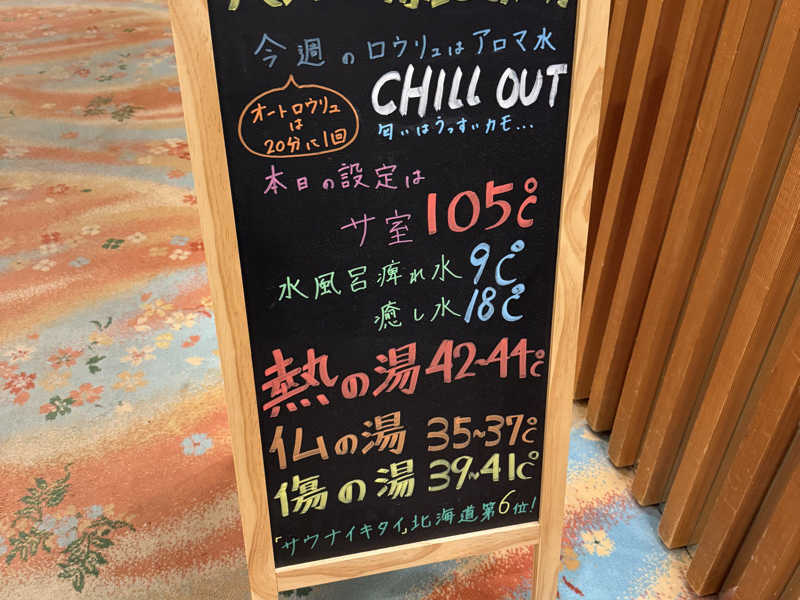 今週のロウリュはアロマ水
CHILL OUT
オートロウリュ
は
20分に1回
匂いはうっすぃカモ...
本日の設定は
サ室 105℃
水風呂痺れ水 9℃
癒し水 18℃
熱の湯 42~44℃
仏の湯 35~37℃
傷の湯 39~41℃
「サウナイキタイ」北海道第6位!